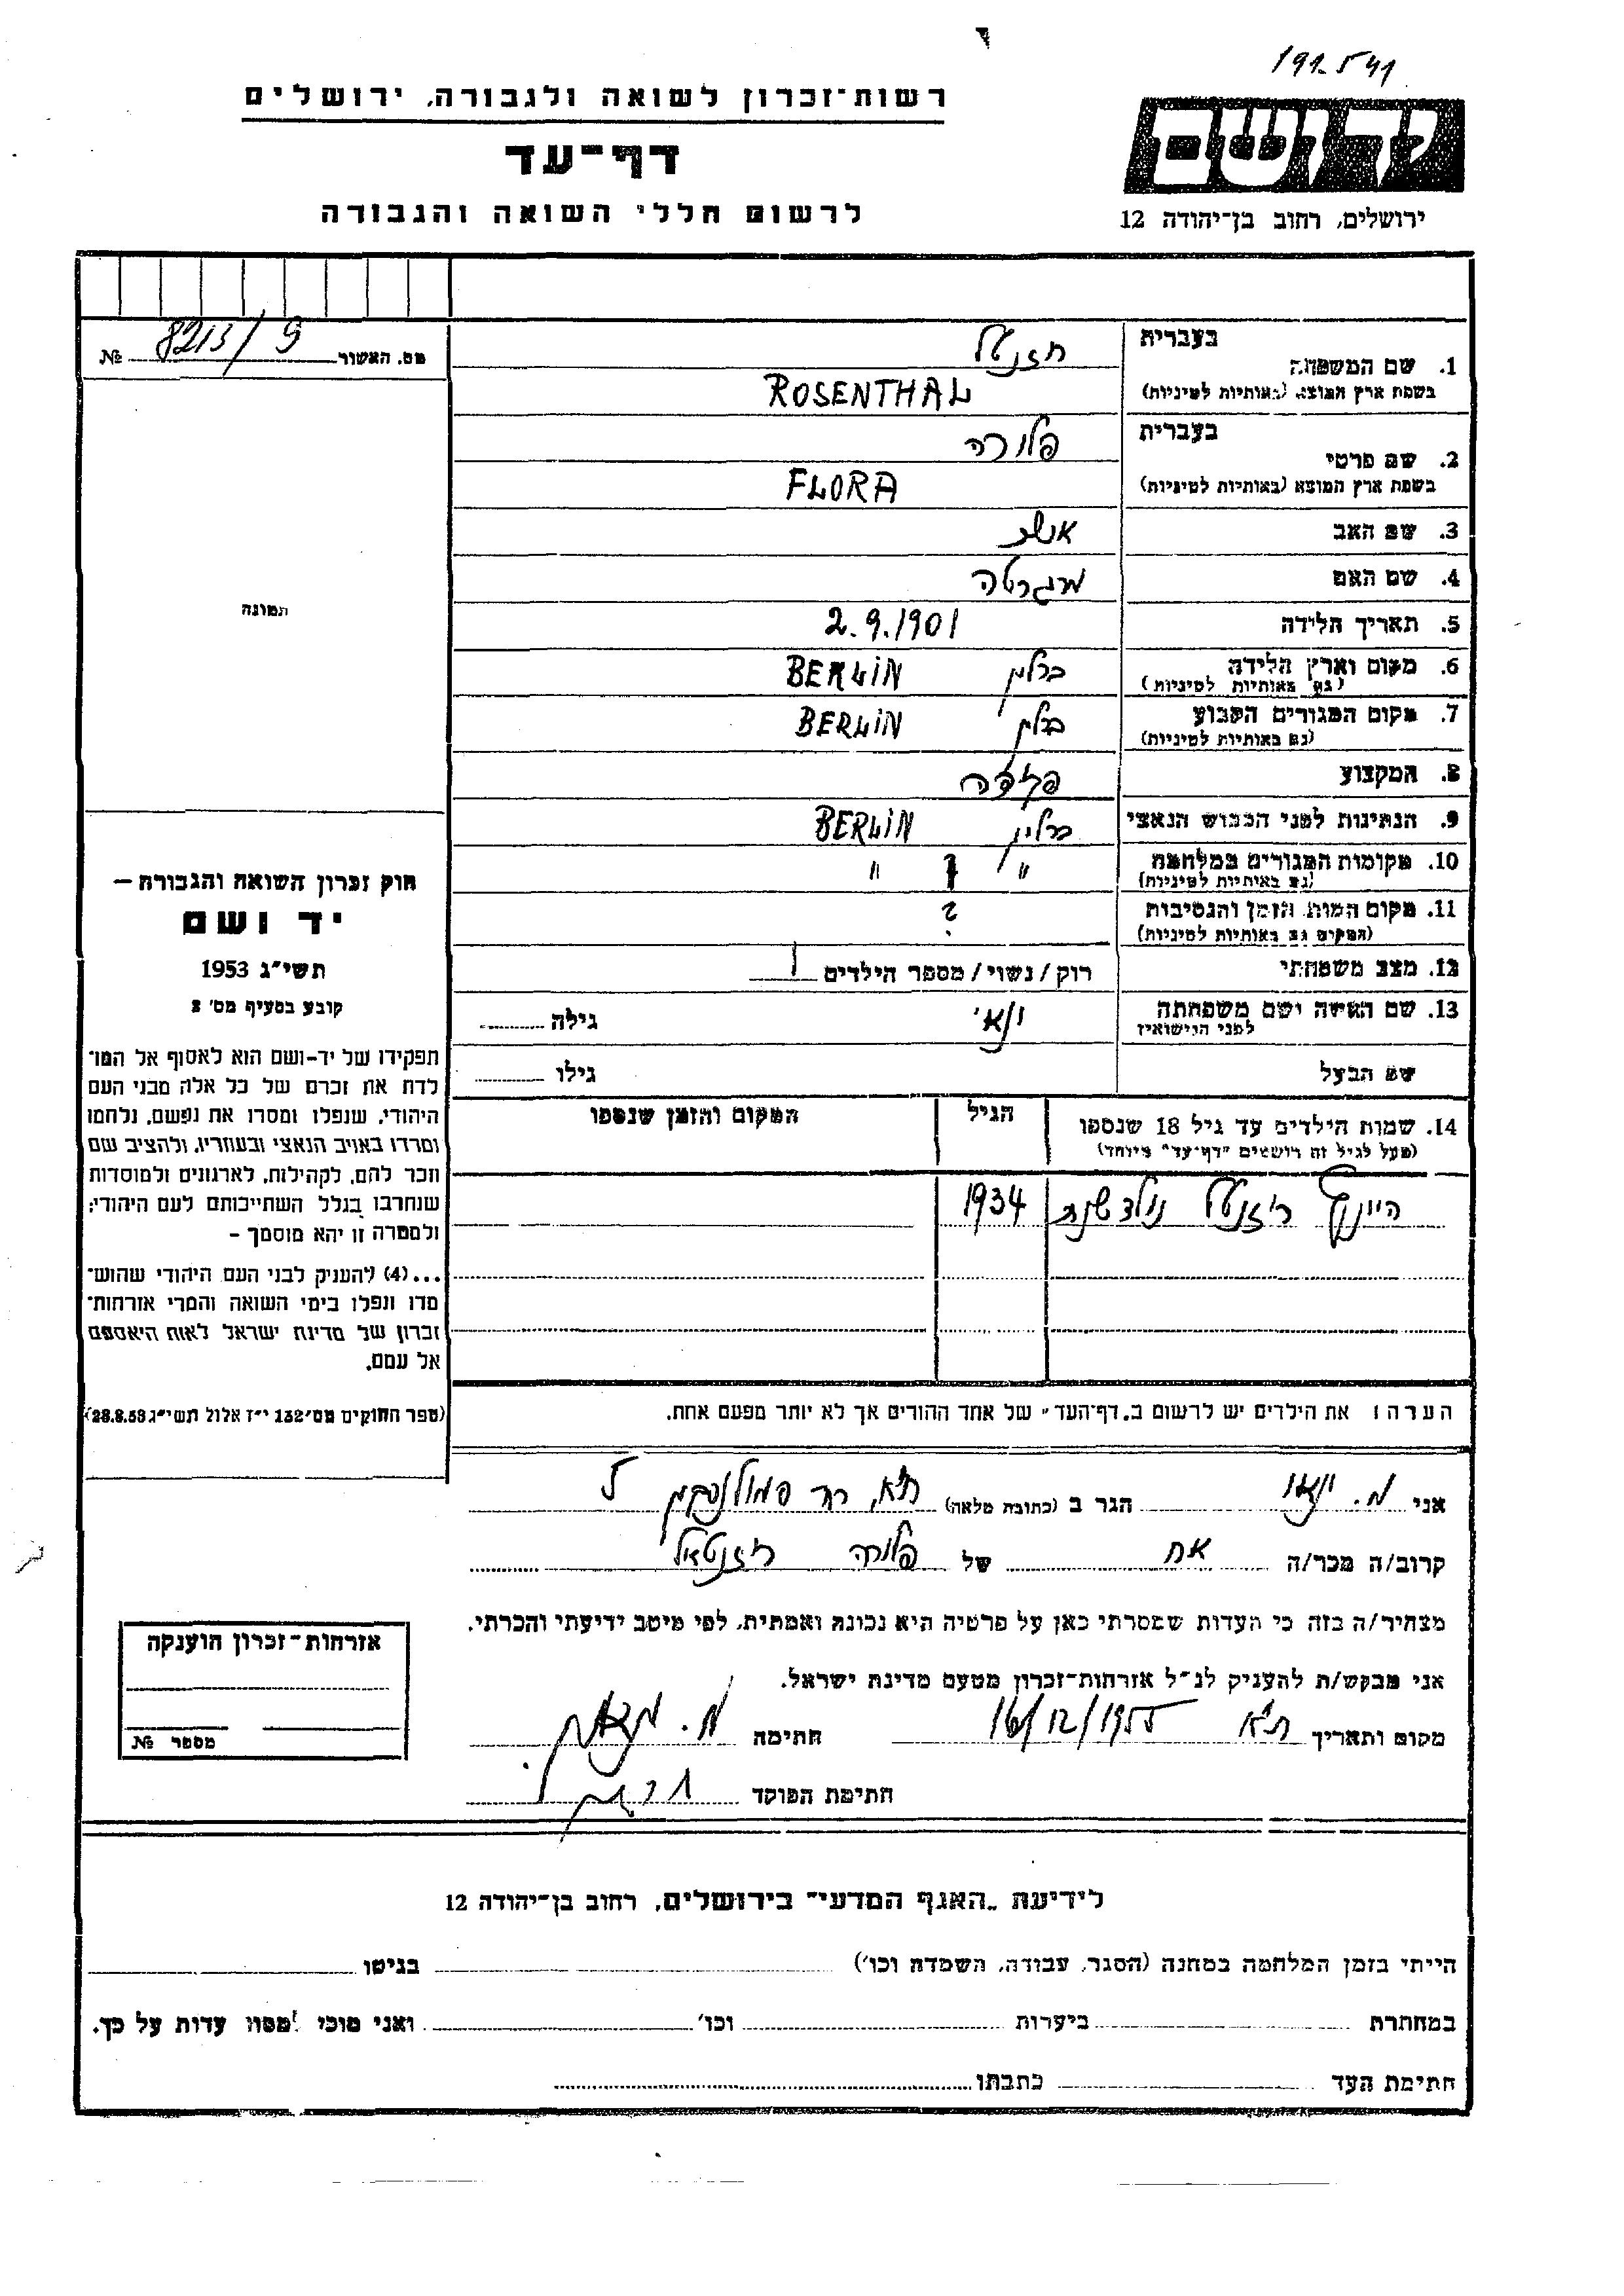 191541
רשות־זכרון לשואה ולגבורה, ירושלים
דף־עד
לרשום חללי השואה והגבורה
ידושם
ירושלים, רחוב בן־יהודה 12
מס. האשור 8213/9 №
תמונה
חוק זכרון השואה והגבורה —
יד ושם
תשי״ג 1953
קובע בסעיף מס׳ 2
תפקידו של יד-ושם הוא לאסוף אל המו־
לדת את זכרם של כל אלה מבני העם
היהודי, שנפלו ומסרו את נפשם, נלחמו
ומרדו באויב הנאצי ובעוזריו, ולהציב שם
וזכר להם, לקהילות, לארגונים ולמוסדות
שנחרבו בגלל השתייכותם לעם היהודי;
ולמטרה זו יהא מוסמך –
...(4) להעניק לבני העם היהודי שהוש־
מדו ונפלו בימי השואה והמרי אזרחות־
זכרון של מדינת ישראל לאות היאספם
אל עמם.
(ספר החוקים מס׳ 132 י״ז אלול תשי״ג 28.8.53)
בעברית
1. שם המשפחה רוזנטל
בשפת ארץ המוצא (באותיות לטיניות) ROSENTHAL
בעברית
2. שם פרטי פלורה
בשפת ארץ המוצא (באותיות לטיניות) FLORA
3. שם האב
4. שם האם מרגרטה
5. תאריך הלידה 2.9.1901
6. מקום וארץ הלידה ברלין BERLIN
(גם באותיות לטיניות)
7. מקום המגורים הקבוע ברלין BERLIN
(גם באותיות לטיניות)
8. המקצוע פקידה
9. הנתינות לפני הכבוש הנאצי ברלין BERLIN
10. מקומות המגורים במלחמה " ? "
(גם באותיות לטיניות)
11. מקום המות, הזמן והנסיבות ?
(המקום גם באותיות לטיניות)
12. מצב משפחתי רוק/נשוי/מספר הילדים 1
13. שם האשה ושם משפחתה גילה
לפני הנישואין
שם הבעל גילו
14. שמות הילדים עד גיל 18 שנספו הגיל המקום והזמן שנספו
(מעל לגיל זה רושמים "דף־עד" מיוחד)
רוזנטל נולד שנת 1934
הערה: את הילדים יש לרשום ב„דף־העד״ של אחד ההורים אך לא יותר מפעם אחת.
אני מ. הגר ב (כתובת מלאה) ת״א, רח'
קרוב/ה מכר/ה אח של פלורה רוזנטאל
מצהיר/ה בזה כי העדות שמסרתי כאן על פרטיה היא נכונה ואמתית, לפי מיטב ידיעתי והכרתי.
אני מבקש/ת להעניק לנ״ל אזרחות־זכרון מטעם מדינת ישראל.
מקום ותאריך ת״א 16/12/1955 חתימה
חתימת הפוקד
אזרחות־זכרון הוענקה
מספר №
לידיעת „האגף המדעי״ בירושלים, רחוב בן־יהודה 12
הייתי בזמן המלחמה במחנה (הסגר, עבודה, השמדה וכו׳) בגיטו
במחתרת ביערות וכו׳ ואני מוכן למסור עדות על כך.
חתימת העד כתבתו